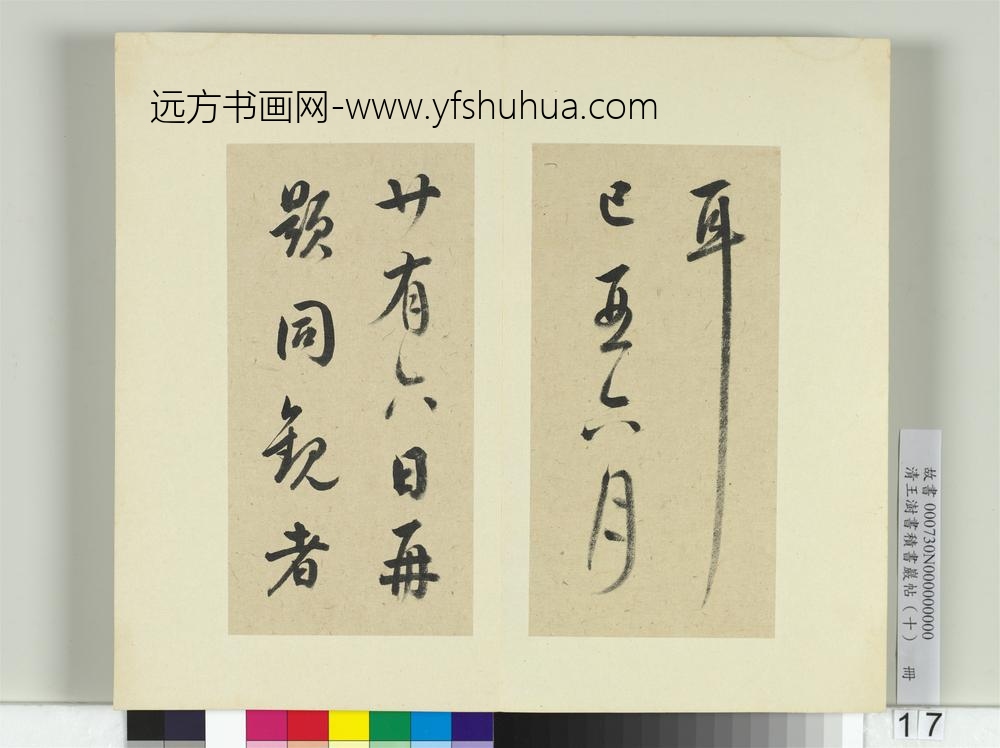 远方书画网-www.yfshuhua.com
耳
己丑六月
廿有六日再
题同観者
故書 000730N000000000
清王澍書積書巖帖（十） 冊
17